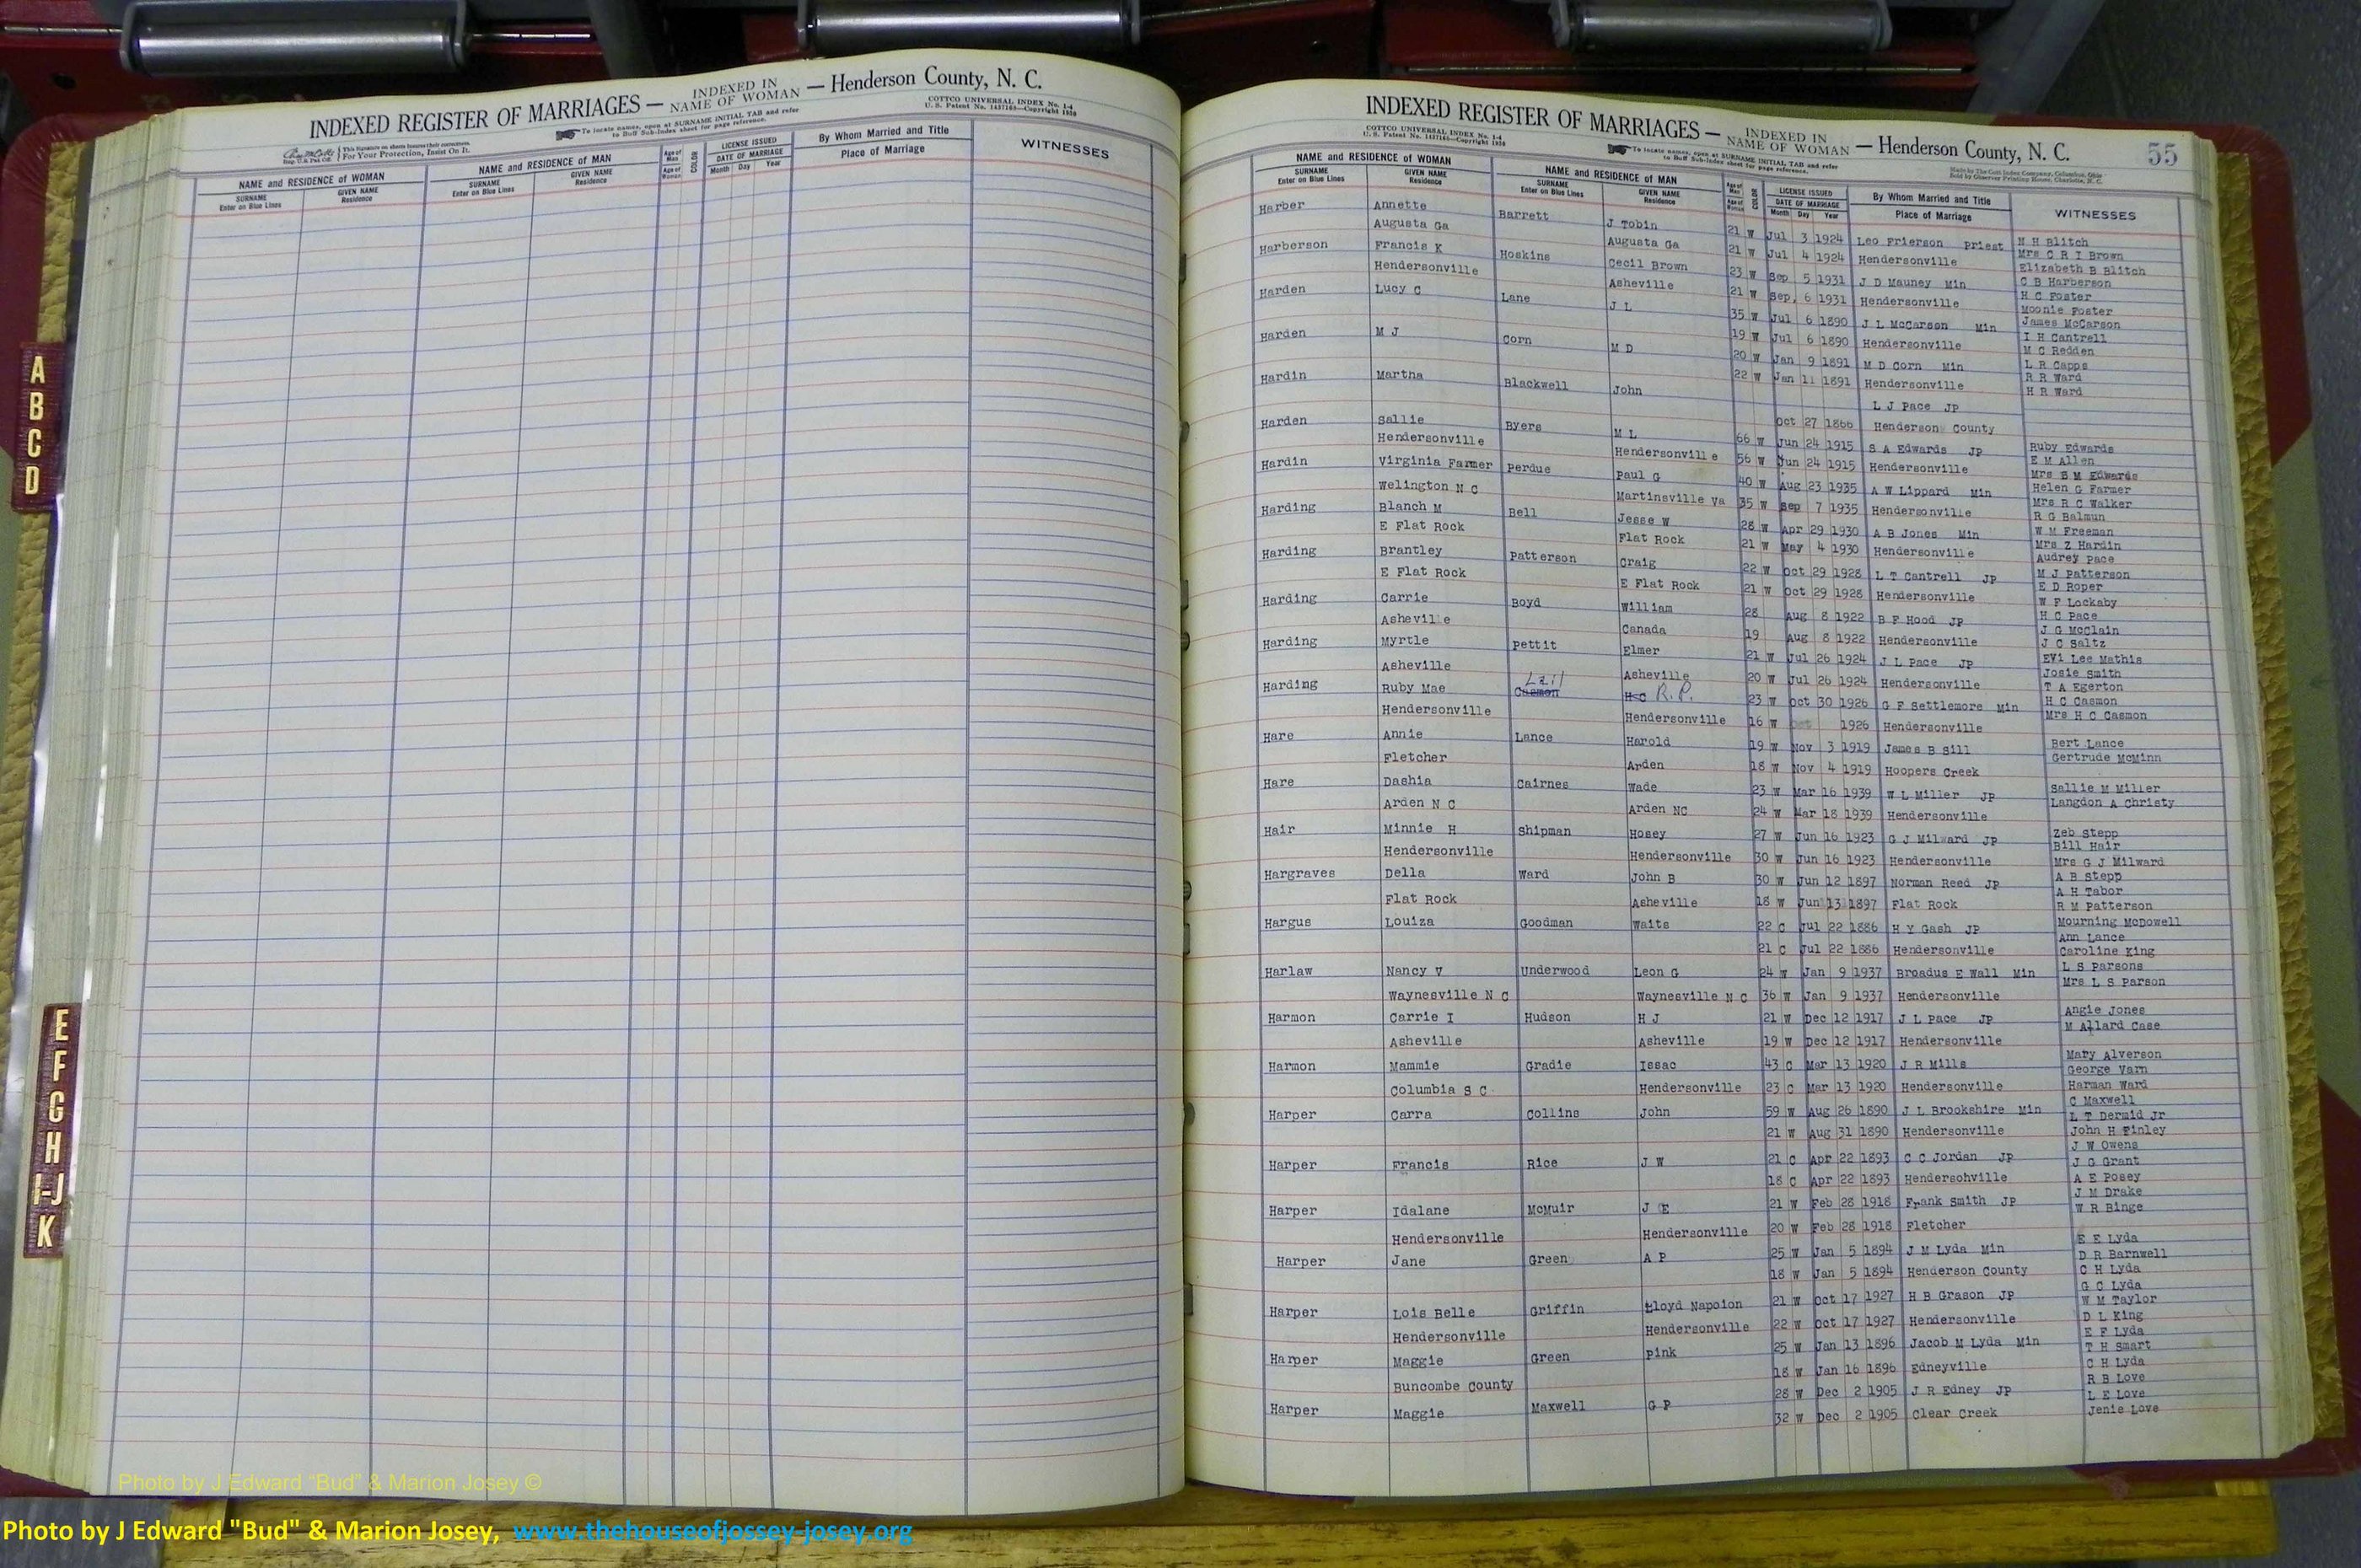 INDEXED REGISTER OF MARRIAGES — INDEXED IN NAME OF WOMAN — Henderson County, N. C.
COTTCO UNIVERSAL INDEX No. 1-4
U. S. Patent No. 1437163—Copyright 1930
To locate names, open at SURNAME INITIAL TAB and refer
to Buff Sub-Index sheet for page reference.
This Signature on sheets insures their correctness.
For Your Protection, Insist On It.
NAME and RESIDENCE OF WOMAN NAME and RESIDENCE OF MAN Age of Man Age of Woman COLOR LICENSE ISSUED DATE OF MARRIAGE By Whom Married and Title Place of Marriage WITNESSES
SURNAME Enter on Blue Lines GIVEN NAME Residence SURNAME Enter on Blue Lines GIVEN NAME Residence Month Day Year
A
B
C
D
E
F
G
H
I-J
K
INDEXED REGISTER OF MARRIAGES — INDEXED IN NAME OF WOMAN — Henderson County, N. C. 55
COTTCO UNIVERSAL INDEX No. 1-4
U. S. Patent No. 1437163—Copyright 1930
To locate names, open at SURNAME INITIAL TAB and refer
to Buff Sub-Index sheet for page reference.
Made by The Cott Index Company, Columbus, Ohio
Sold by Observer Printing House, Charlotte, N. C.
NAME and RESIDENCE OF WOMAN NAME and RESIDENCE OF MAN Age of Man Age of Woman COLOR LICENSE ISSUED DATE OF MARRIAGE By Whom Married and Title Place of Marriage WITNESSES
SURNAME Enter on Blue Lines GIVEN NAME Residence SURNAME Enter on Blue Lines GIVEN NAME Residence Month Day Year
Harber Annette Barrett J Tobin 21 W Jul 3 1924 Leo Frierson Priest M H Blitch
Mrs C R I Brown
Augusta Ga Augusta Ga 21 W Jul 4 1924 Hendersonville Elizabeth B Blitch
Harberson Francis K Hoskins Cecil Brown 23 W Sep 5 1931 J D Mauney Min C B Harberson
H C Foster
Hendersonville Asheville 21 W Sep, 6 1931 Hendersonville Moonie Foster
Harden Lucy C Lane J L 35 W Jul 6 1890 J L McCarson Min James McCarson
I H Cantrell
19 W Jul 6 1890 Hendersonville M C Redden
Harden M J Corn M D 20 W Jan 9 1891 M D Corn Min L R Capps
R R Ward
22 W Jan 11 1891 Hendersonville H R Ward
Hardin Martha Blackwell John L J Pace JP
Oct 27 1866 Henderson County
Harden Sallie Byers M L 66 W Jun 24 1915 S A Edwards JP Ruby Edwards
E M Allen
Hendersonville Hendersonville 56 W Jun 24 1915 Hendersonville Mrs B M Edwards
Hardin Virginia Farmer Perdue Paul G 40 W Aug 23 1935 A W Lippard Min Helen G Farmer
Mrs R C Walker
Welington N C Martinsville Va 35 W Sep 7 1935 Hendersonville R G Balmun
Harding Blanch M Bell Jesse W 28 W Apr 29 1930 A B Jones Min W M Freeman
Mrs Z Hardin
E Flat Rock Flat Rock 21 W May 4 1930 Hendersonville Audrey Pace
Harding Brantley Patterson Craig 22 W Oct 29 1928 L T Cantrell JP M J Patterson
E D Roper
E Flat Rock E Flat Rock 21 W Oct 29 1928 Hendersonville W F Lockaby
Harding Carrie Boyd William 28 Aug 8 1922 B F Hood JP H C Pace
J G McClain
Asheville Canada 19 Aug 8 1922 Hendersonville J C Saltz
Harding Myrtle Pettit Elmer 21 W Jul 26 1924 J L Pace JP Evi Lee Mathis
Josie Smith
Asheville Asheville 20 W Jul 26 1924 Hendersonville T A Egerton
Harding Ruby Mae Casmon Lail H C R. P. 23 W Oct 30 1926 G F Settlemore Min H C Casmon
Mrs H C Casmon
Hendersonville Hendersonville 16 W Oct 1926 Hendersonville
Hare Annie Lance Harold 19 W Nov 3 1919 James B Sill Bert Lance
Gertrude McMinn
Fletcher Arden 18 W Nov 4 1919 Hoopers Creek
Hare Dashia Cairnes Wade 23 W Mar 16 1939 W L Miller JP Sallie M Miller
Langdon A Christy
Arden N C Arden NC 24 W Mar 18 1939 Hendersonville
Hair Minnie H Shipman Hosey 27 W Jun 16 1923 G J Milward JP Zeb Stepp
Bill Hair
Hendersonville Hendersonville 30 W Jun 16 1923 Hendersonville Mrs G J Milward
Hargraves Della Ward John B 30 W Jun 12 1897 Norman Reed JP A B Stepp
A H Tabor
Flat Rock Asheville 18 W Jun 13 1897 Flat Rock R M Patterson
Hargus Louiza Goodman Waits 22 C Jul 22 1886 H Y Gash JP Mourning McDowell
Ann Lance
21 C Jul 22 1886 Hendersonville Caroline King
Harlaw Nancy V Underwood Leon G 24 W Jan 9 1937 Broadus E Wall Min L S Parsons
Mrs L S Parson
Waynesville N C Waynesville N C 36 W Jan 9 1937 Hendersonville
Harmon Carrie I Hudson H J 21 W Dec 12 1917 J L Pace JP Angie Jones
M Allard Case
Asheville Asheville 19 W Dec 12 1917 Hendersonville
Harmon Mammie Gradie Issac 43 C Mar 13 1920 J R Mills Mary Alverson
George Varn
Columbia S C Hendersonville 23 C Mar 13 1920 Hendersonville Harman Ward
Harper Carra Collins John 59 W Aug 26 1890 J L Brookshire Min C Maxwell
L T Dermid Jr
21 W Aug 31 1890 Hendersonville John H Finley
Harper Francis Rice J W 21 C Apr 22 1893 C C Jordan JP J W Owens
J G Grant
18 C Apr 22 1893 Hendersohville A E Posey
Harper Idalane McMuir J E 21 W Feb 28 1918 Frank Smith JP J M Drake
W R Binge
Hendersonville Hendersonville 20 W Feb 28 1918 Fletcher
Harper Jane Green A P 25 W Jan 5 1894 J M Lyda Min E E Lyda
D R Barnwell
18 W Jan 5 1894 Henderson County C H Lyda
Harper Lois Belle Griffin Lloyd Napolon 21 W Oct 17 1927 H B Grason JP G C Lyda
W M Taylor
Hendersonville Hendersonville 22 W Oct 17 1927 Hendersonville D L King
Harper Maggie Green Pink 25 W Jan 13 1896 Jacob M Lyda Min E F Lyda
T H Smart
Buncombe County 18 W Jan 16 1896 Edneyville C H Lyda
Harper Maggie Maxwell G P 28 W Dec 2 1905 J R Edney JP R B Love
L E Love
32 W Dec 2 1905 Clear Creek Jenie Love
Photo by J Edward "Bud" & Marion Josey ©
Photo by J Edward "Bud" & Marion Josey, www.thehouseofjossey-josey.org